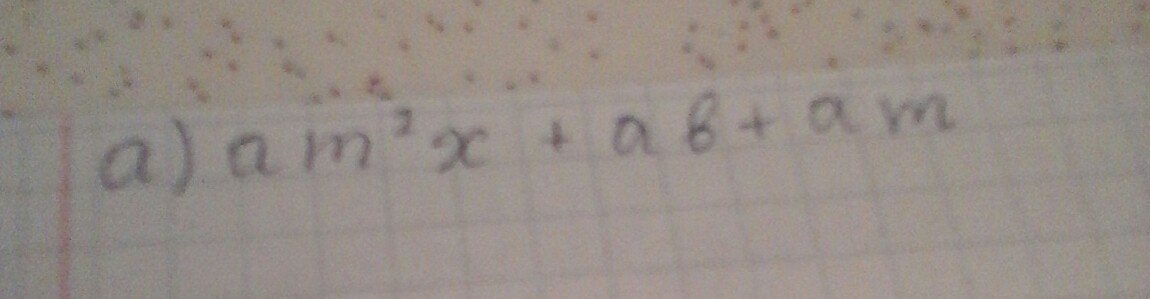 a) am²x + ab + am